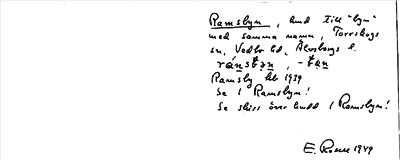 Ramsbyn, hmd till "byn"
med samma namn, Torrskogs
sn, Vedbo hd, Älvsborgs l.
Ramsby lbk 1939
Se 1 Ramsbyn!
Se skiss över hmd 1 Ramsbyn!
E. Rosell 1949